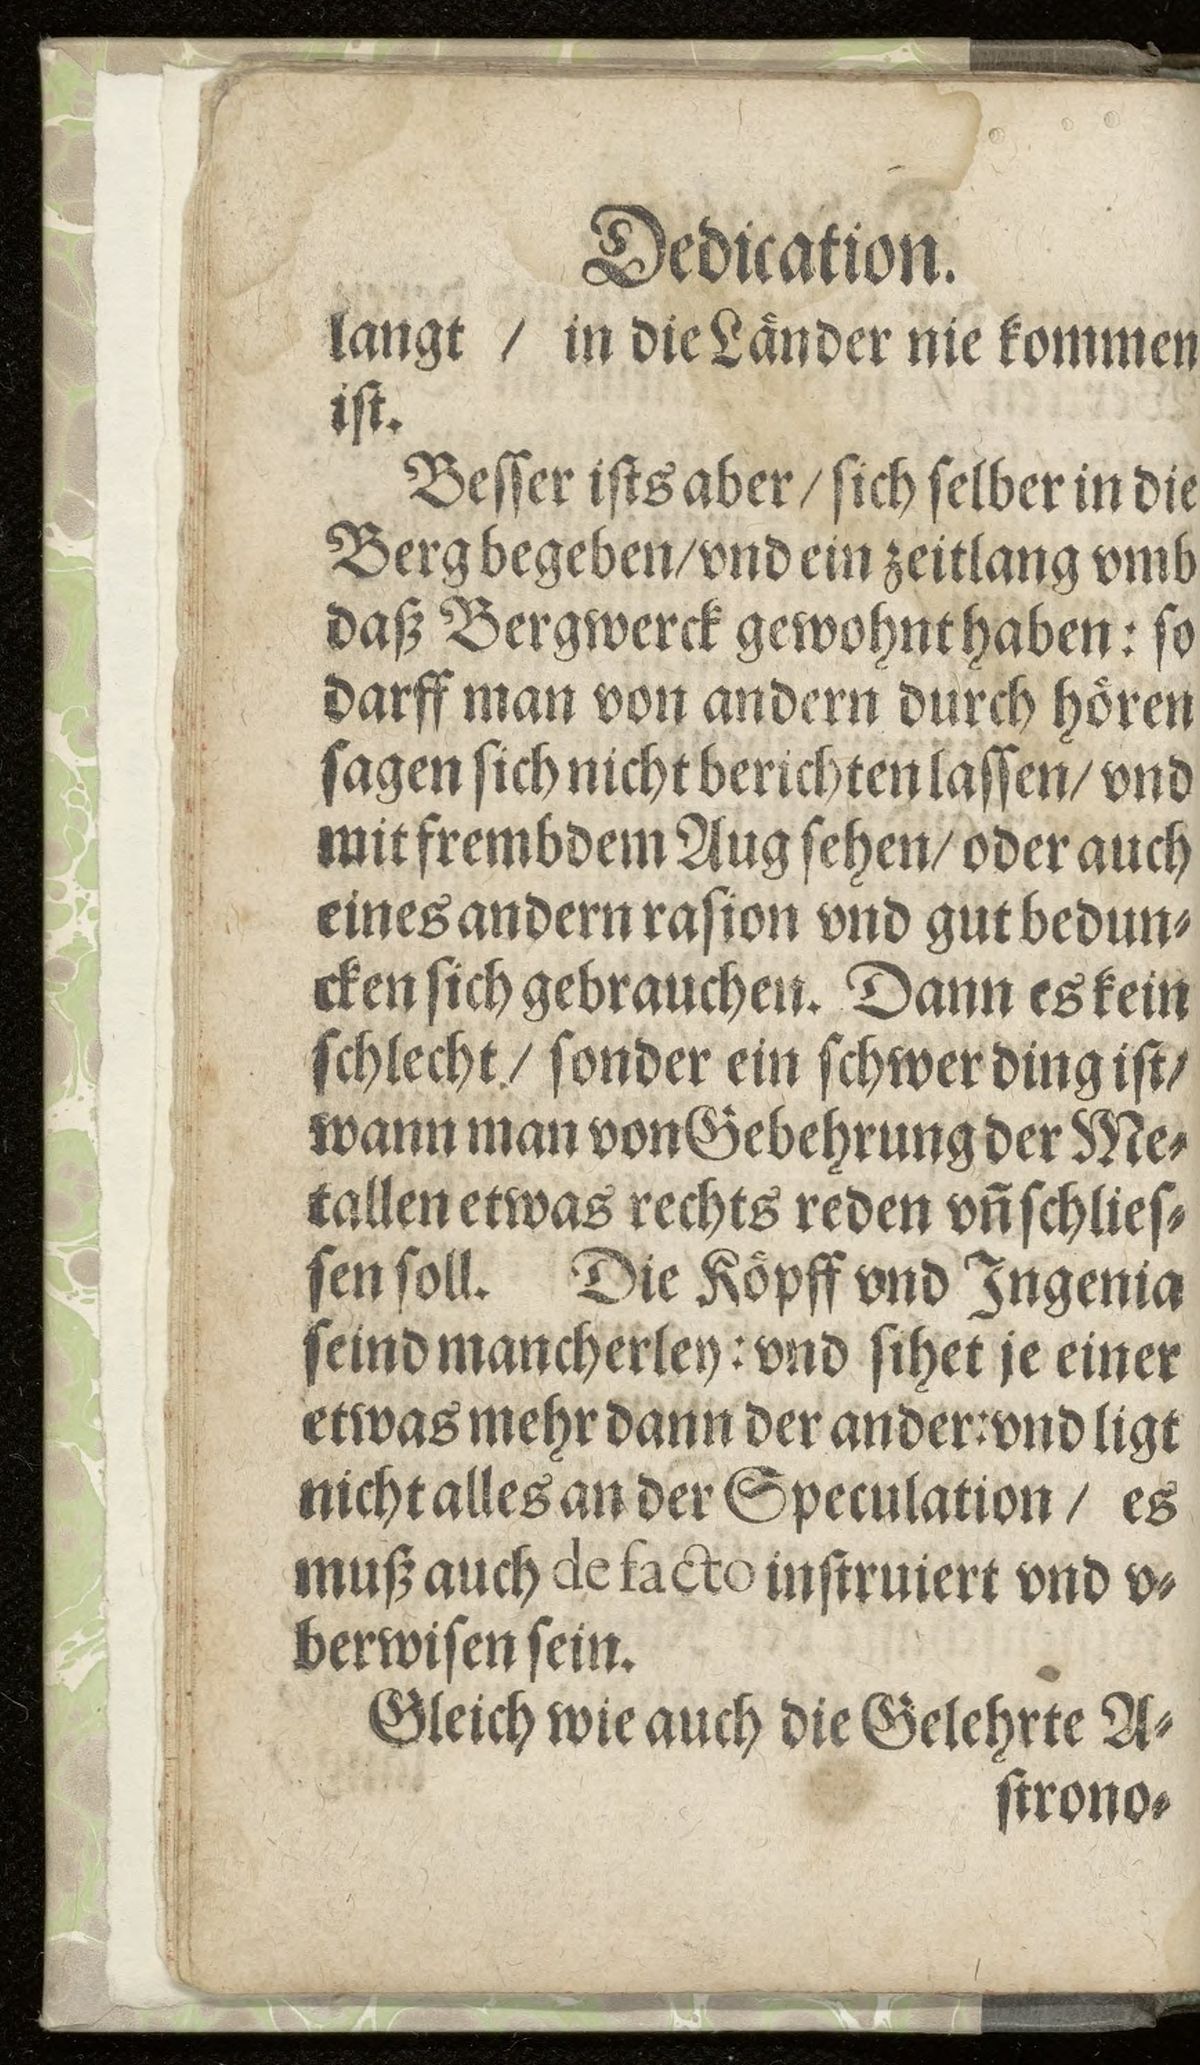 Dedication.
langt / in die Länder nie kommen
ist.
Besser ists aber / sich selber in die
Berg begeben / vnd ein zeitlang vmb
daß Bergwerck gewohnt haben: so
darff man von andern durch hören
sagen sich nicht berichten lassen / vnd
mit frembdem Aug sehen / oder auch
eines andern rasion vnd gut bedun⸗
cken sich gebrauchen. Dann es kein
schlecht / sonder ein schwer ding ist /
wann man von Gebehrung der Me⸗
tallen etwas rechts reden vñ schlies⸗
sen soll. Die Köpff vnd Ingenia
seind mancherley: vnd sihet je einer
etwas mehr dann der ander: vnd ligt
nicht alles an der Speculation / es
muß auch de facto instruiert vnd v⸗
berwisen sein.
Gleich wie auch die Gelehrte A⸗
strono⸗